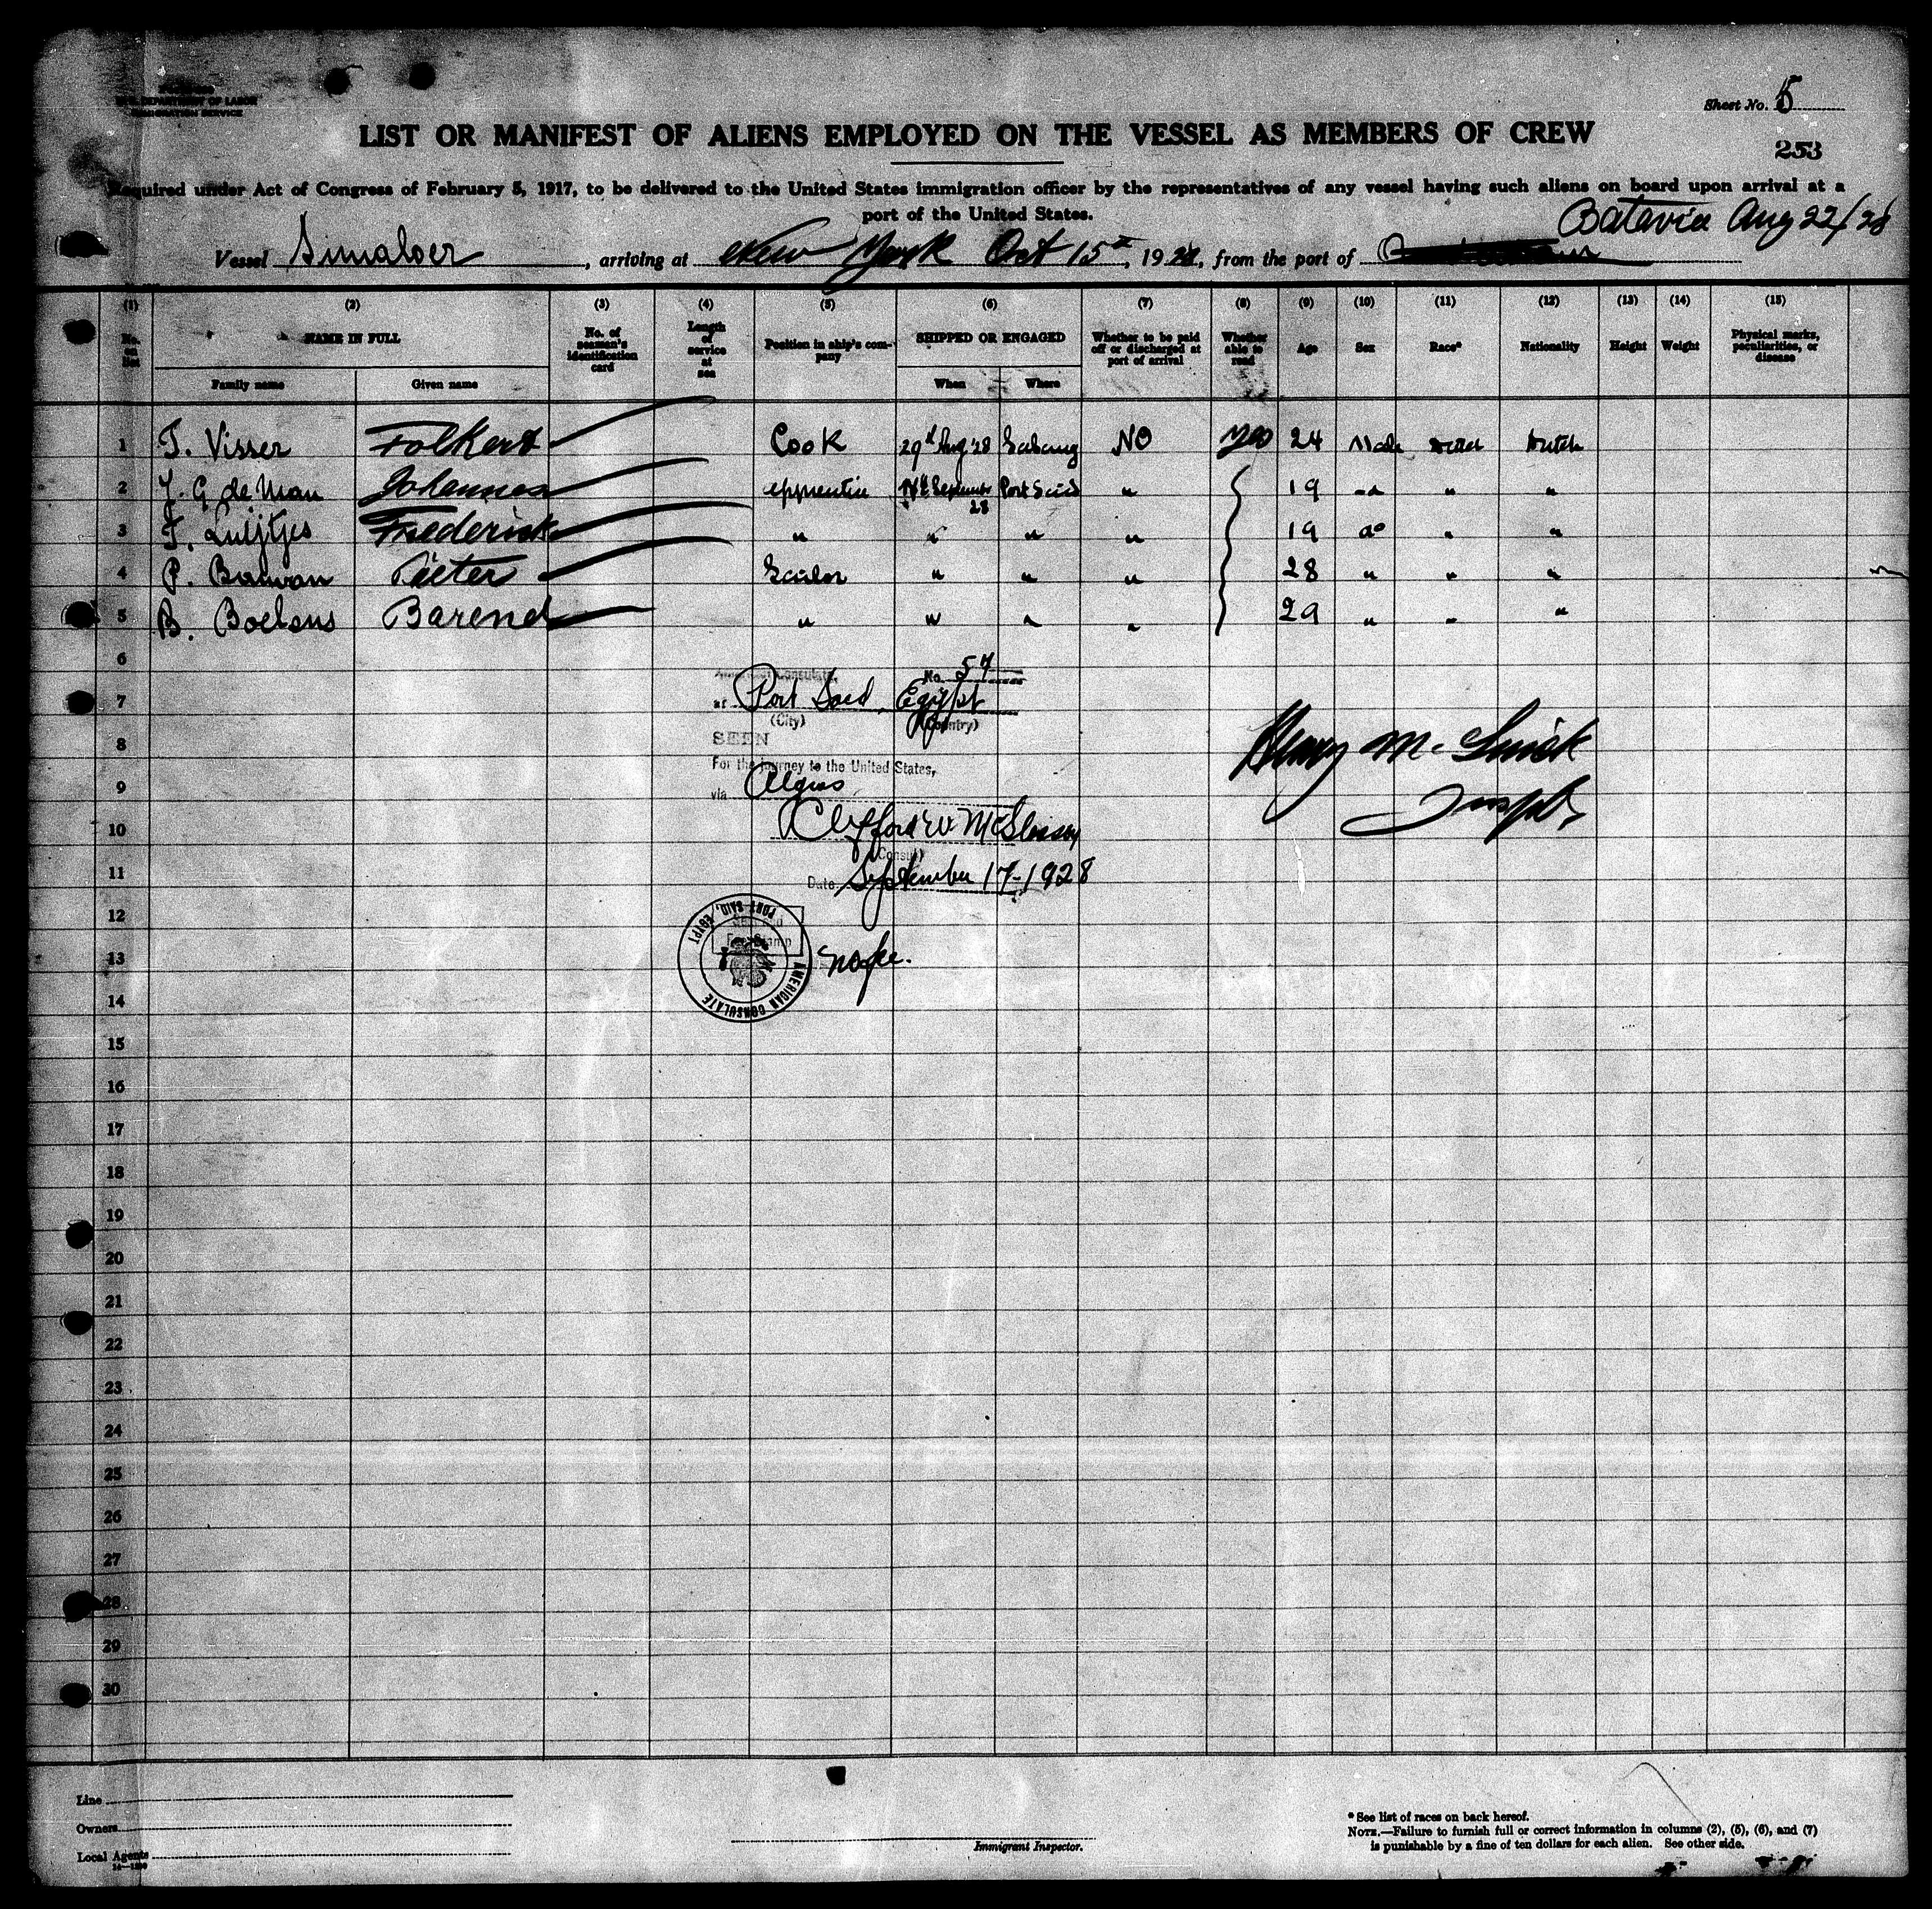 U.S. DEPARTMENT OF LABOR
IMMIGRATION SERVICE
Sheet No. 5
LIST OR MANIFEST OF ALIENS EMPLOYED ON THE VESSEL AS MEMBERS OF CREW
253
Required under Act of Congress of February 5, 1917, to be delivered to the United States immigration officer by the representatives of any vessel having such aliens on board upon arrival at a
port of the United States.
Batavia Aug 22/28
Vessel Simaloer, arriving at New York Oct 15, 1928, from the port of
(1) (2) (3) (4) (5) (6) (7) (8) (9) (10) (11) (12) (13) (14) (15)
No. on list NAME IN FULL No. of seaman's identification card Length of service at sea Position in ship's company SHIPPED OR ENGAGED Whether to be paid off or discharged at port of arrival Whether able to read Age Sex Race* Nationality Height Weight Physical marks, peculiarities, or disease
Family name Given name When Where
1 F. Visser Folkert Cook 29d Aug '28 Sabang NO yes 24 Male Dutch Dutch
2 J. G de Man Johannes apprentice 17th September 28 Port Said " 19 do " "
3 F. Luijtjes Frederick " " " " 19 do " "
4 P. Bouwan Pieter Sailor " " " 28 " " "
5 B. Boelens Barend " " " " 29 " " "
6
American Consulate, No. 57
7
at Port Said, Egypt
(City) (Country)
8
SEEN
For the journey to the United States,
9
via Algiers
10
Clifford W. McGlasson
(Consul)
11
Date September 17-1928
12
PORT SAID, EGYPT
AMERICAN CONSULATE
Fee Stamp
13
No fee.
Henry M. Smick
14
15
16
17
18
19
20
21
22
23
24
25
26
27
28
29
30
Line
Owners
Local Agents
Immigrant Inspector.
* See list of races on back hereof.
NOTE.—Failure to furnish full or correct information in columns (2), (5), (6), and (7)
is punishable by a fine of ten dollars for each alien. See other side.